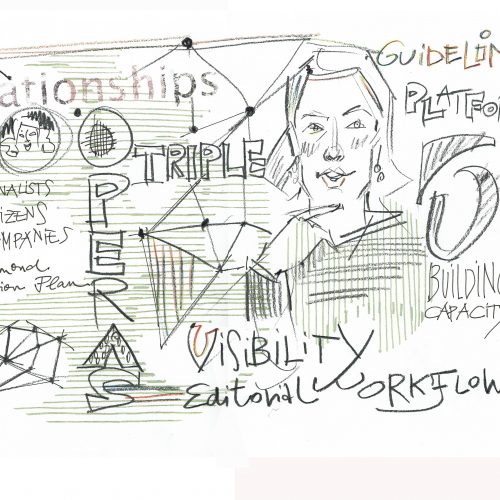 ationships
GUIDELIN
PLATFO
TRIPLE
OPERAS
NALISTS
IZENS
MPANIES
mond
ion Plan
BUILDING
CAPACIT
VISIBILITY
Editorial WORKFLOW